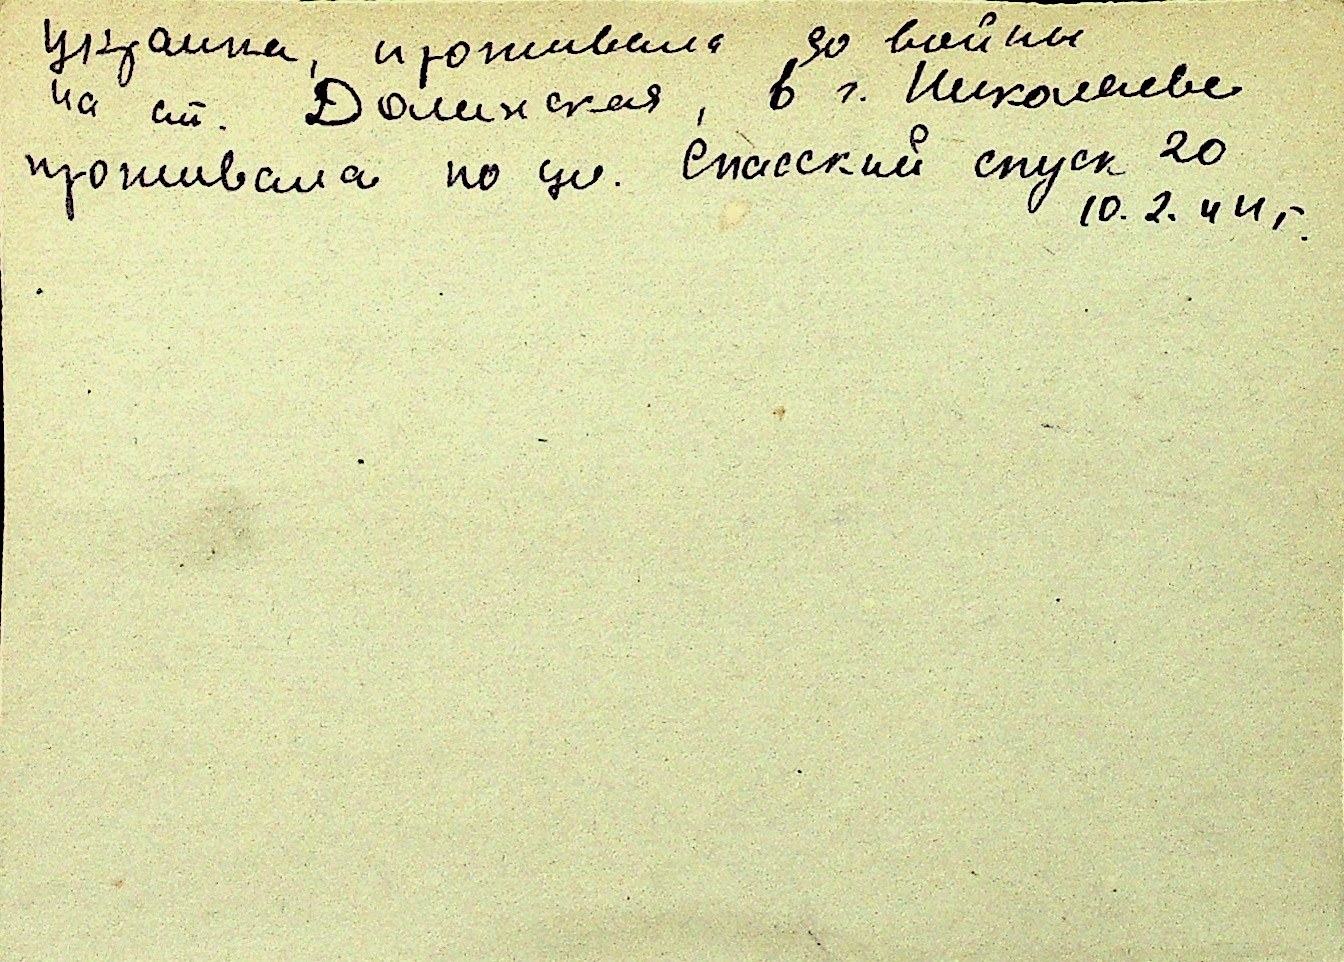 Украинка, проживала до войны
на ст. Долинская, в г. Николаеве
проживала по ул. Спасский спуск 20
10.2.44 г.